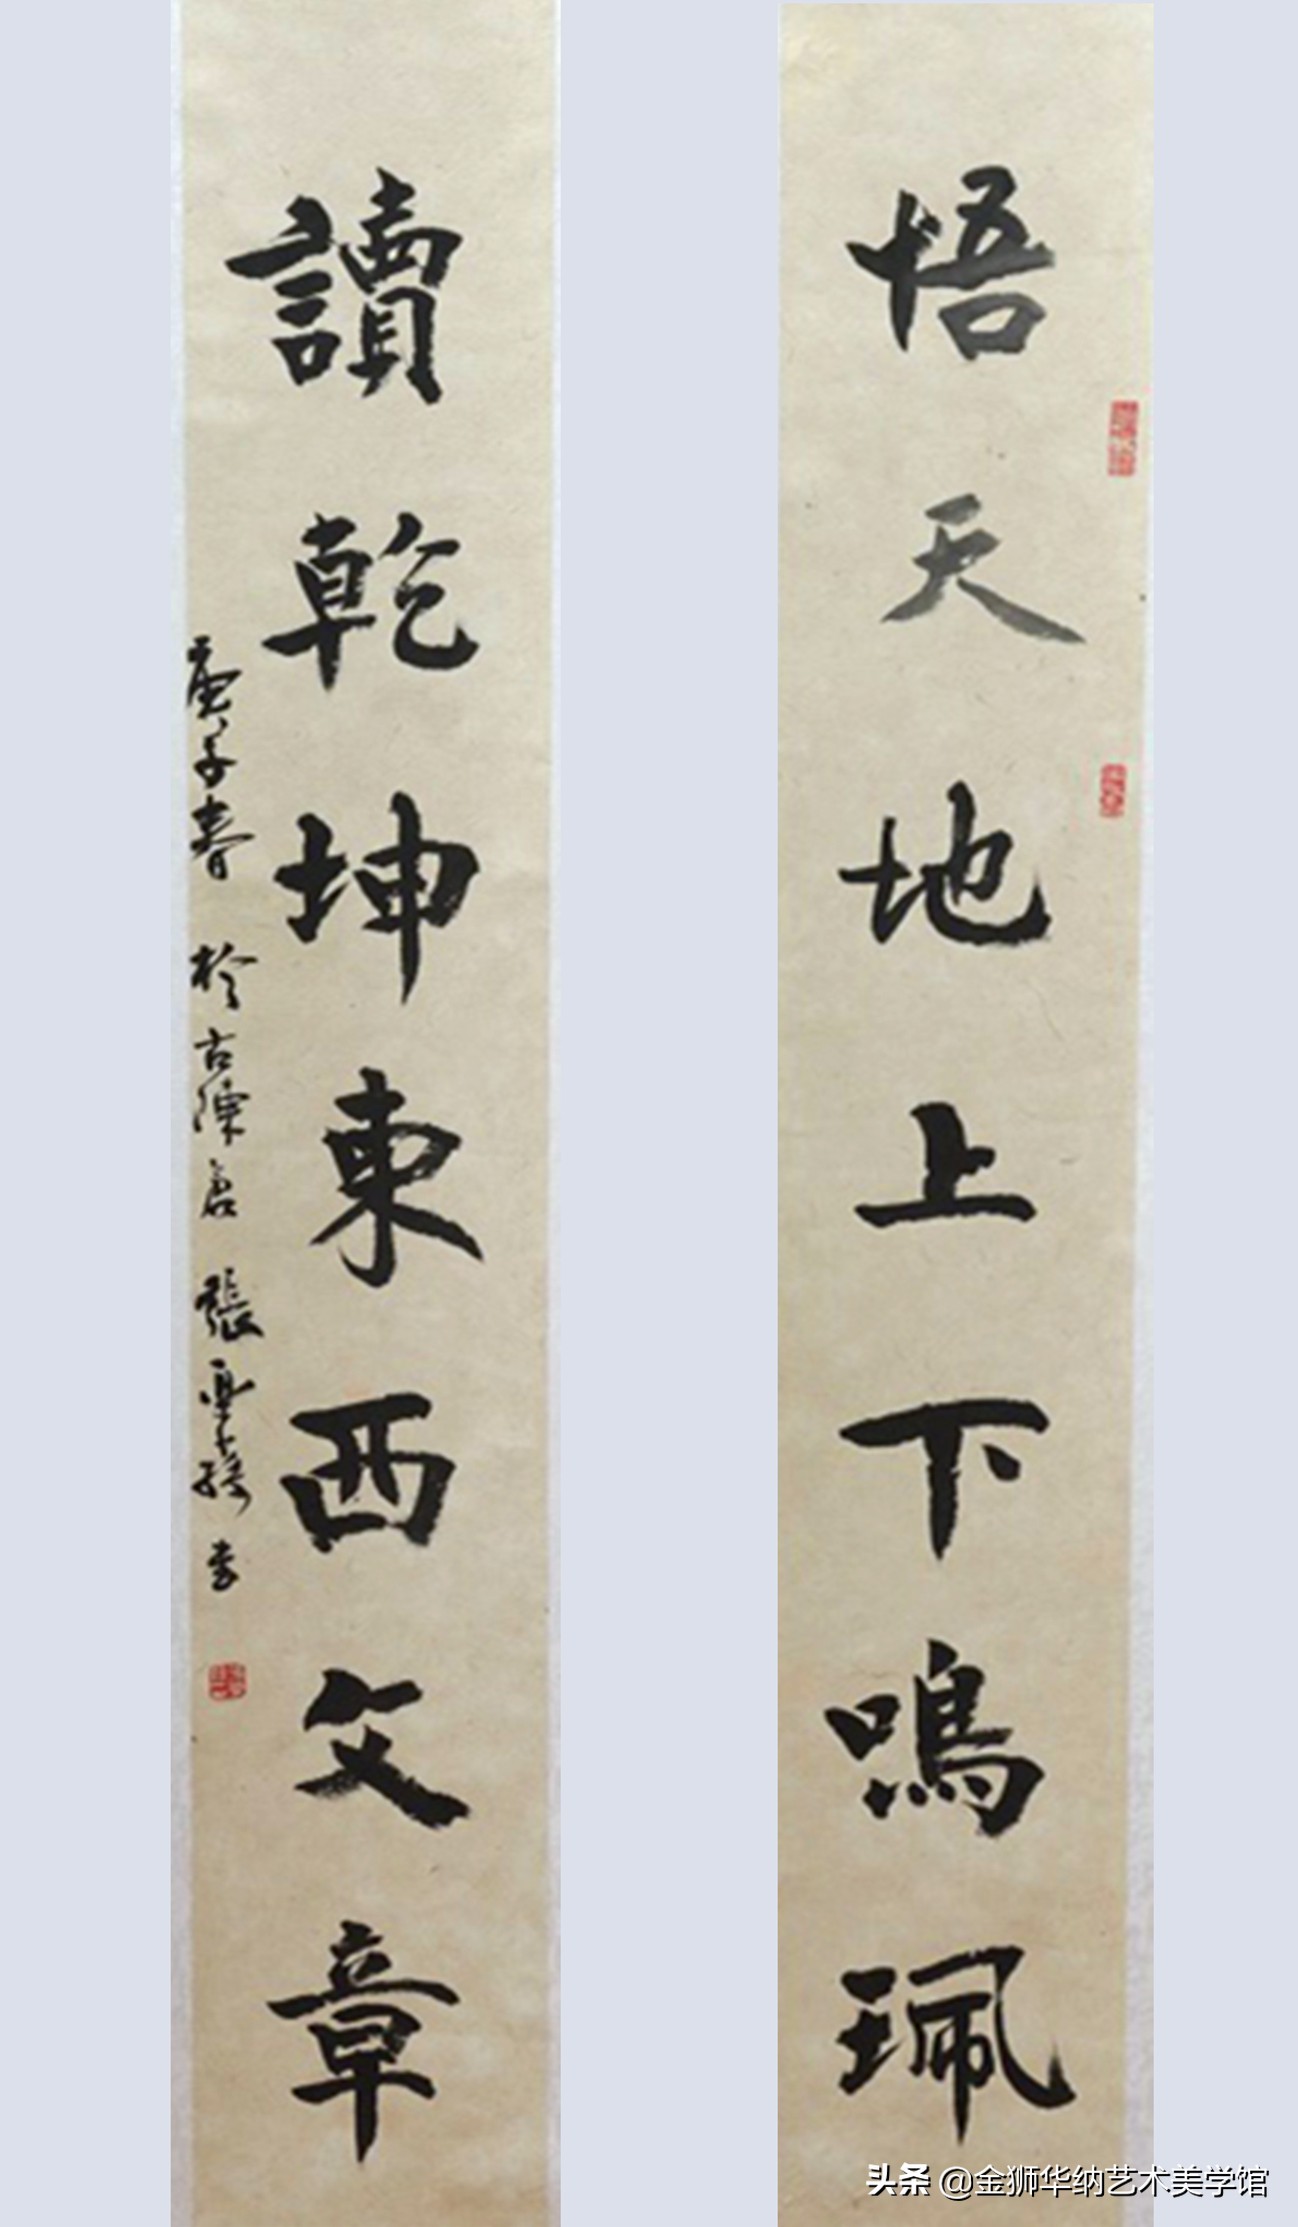 悟天地上下鳴珮
讀乾坤東西文章
庚子春 於古陳倉 張
书
头条 @金狮华纳艺术美学馆